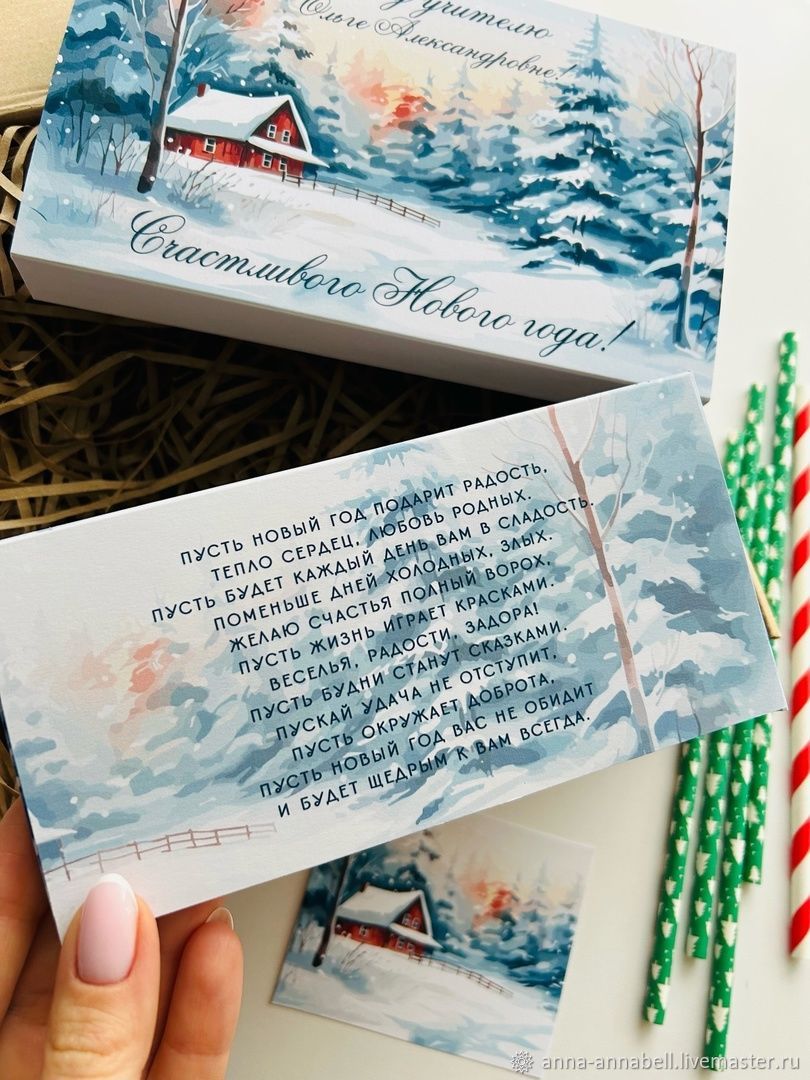 учителю
Ольге Александровне!
Счастливого Нового года!
ПУСТЬ НОВЫЙ ГОД ПОДАРИТ РАДОСТЬ,
ТЕПЛО СЕРДЕЦ, ЛЮБОВЬ РОДНЫХ.
ПУСТЬ БУДЕТ КАЖДЫЙ ДЕНЬ ВАМ В СЛАДОСТЬ,
ПОМЕНЬШЕ ДНЕЙ ХОЛОДНЫХ, ЗЛЫХ.
ЖЕЛАЮ СЧАСТЬЯ ПОЛНЫЙ ВОРОХ,
ПУСТЬ ЖИЗНЬ ИГРАЕТ КРАСКАМИ.
ВЕСЕЛЬЯ, РАДОСТИ, ЗАДОРА!
ПУСТЬ БУДНИ СТАНУТ СКАЗКАМИ.
ПУСКАЙ УДАЧА НЕ ОТСТУПИТ,
ПУСТЬ ОКРУЖАЕТ ДОБРОТА,
ПУСТЬ НОВЫЙ ГОД ВАС НЕ ОБИДИТ
И БУДЕТ ЩЕДРЫМ К ВАМ ВСЕГДА.
anna-annabell.livemaster.ru